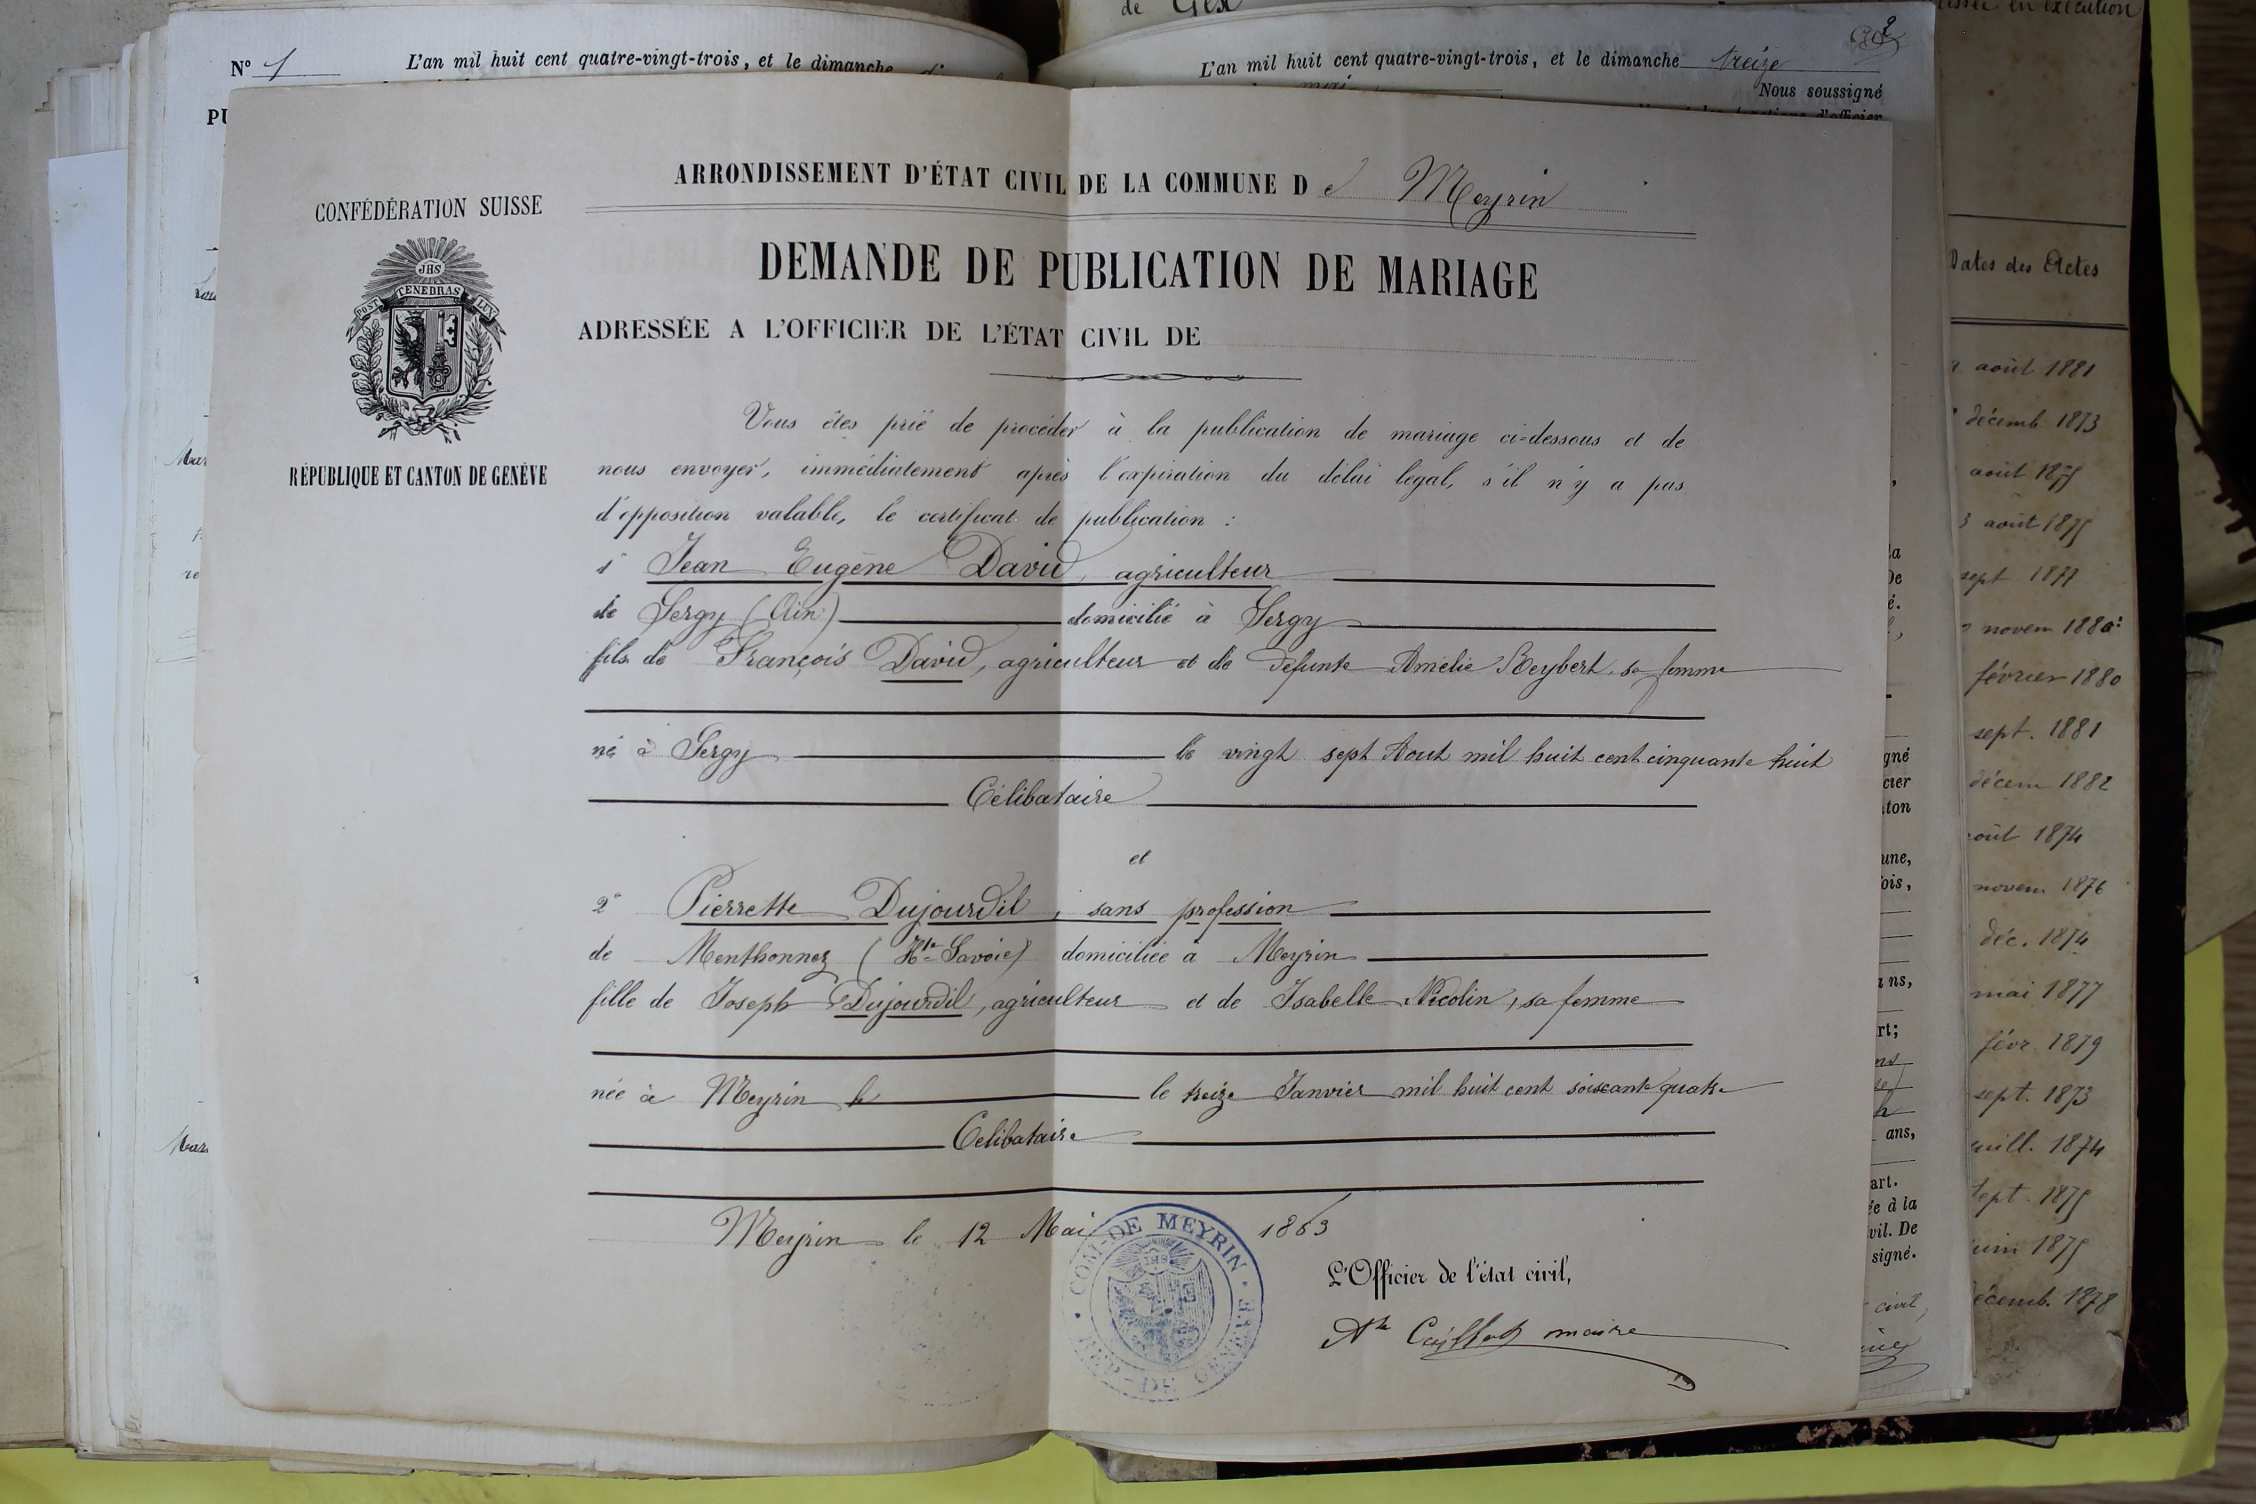 de Gex
N° 1 L'an mil huit cent quatre-vingt-trois, et le dimanche
L'an mil huit cent quatre-vingt-trois, et le dimanche treize
mai
Nous soussigné
ARRONDISSEMENT D'ÉTAT CIVIL DE LA COMMUNE D e Meyrin
CONFÉDÉRATION SUISSE
JHS
POST TENEBRAS LUX
RÉPUBLIQUE ET CANTON DE GENÈVE
DEMANDE DE PUBLICATION DE MARIAGE
ADRESSÉE A L'OFFICIER DE L'ÉTAT CIVIL DE
Vous êtes prié de procéder à la publication de mariage ci-dessous et de
nous envoyer, immédiatement après l'expiration du délai légal, s'il n'y a pas
d'opposition valable, le certificat de publication :
1° Jean Eugène David, agriculteur
de Sergy (Ain) domicilié à Sergy
fils de François David, agriculteur et de défunte Amélie Reybert, sa femme
né à Sergy le vingt sept Aout mil huit cent cinquante huit
Célibataire
et
2° Pierrette Dujourdil, sans profession
de Menthonnez (Hte Savoie) domiciliée à Meyrin
fille de Joseph Dujourdil, agriculteur et de Isabelle Nicolin, sa femme
née à Meyrin le le treize Janvier mil huit cent soixante quatre
Célibataire
Meyrin le 12 Mai 1883
COM. DE MEYRIN · REP. DE GENEVE
L'Officier de l'état civil,
maire
Dates des Actes
août 1881
décemb. 1873
août 1875
août 1875
sept 1877
novem 1880
février 1880
sept. 1881
décem 1882
août 1874
novem 1876
déc. 1874
mai 1877
févr. 1879
sept. 1873
juill. 1874
sept. 1875
juin 1875
décemb. 1878